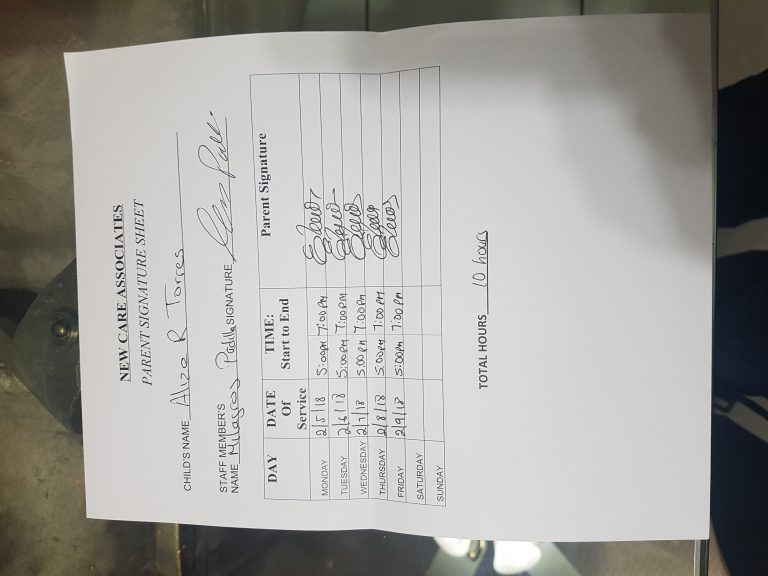 NEW CARE ASSOCIATES
PARENT SIGNATURE SHEET
CHILD'S NAME Aliza R Torres
STAFF MEMBER'S
NAME Milagros Padilla SIGNATURE
DAY DATE Of Service TIME: Start to End Parent Signature
MONDAY 2/5/18 5:00PM 7:00PM
TUESDAY 2/6/18 5:00PM 7:00PM
WEDNESDAY 2/7/18 5:00PM 7:00PM
THURSDAY 2/8/18 5:00PM 7:00PM
FRIDAY 2/9/18 5:00PM 7:00PM
SATURDAY
SUNDAY
TOTAL HOURS 10 hours